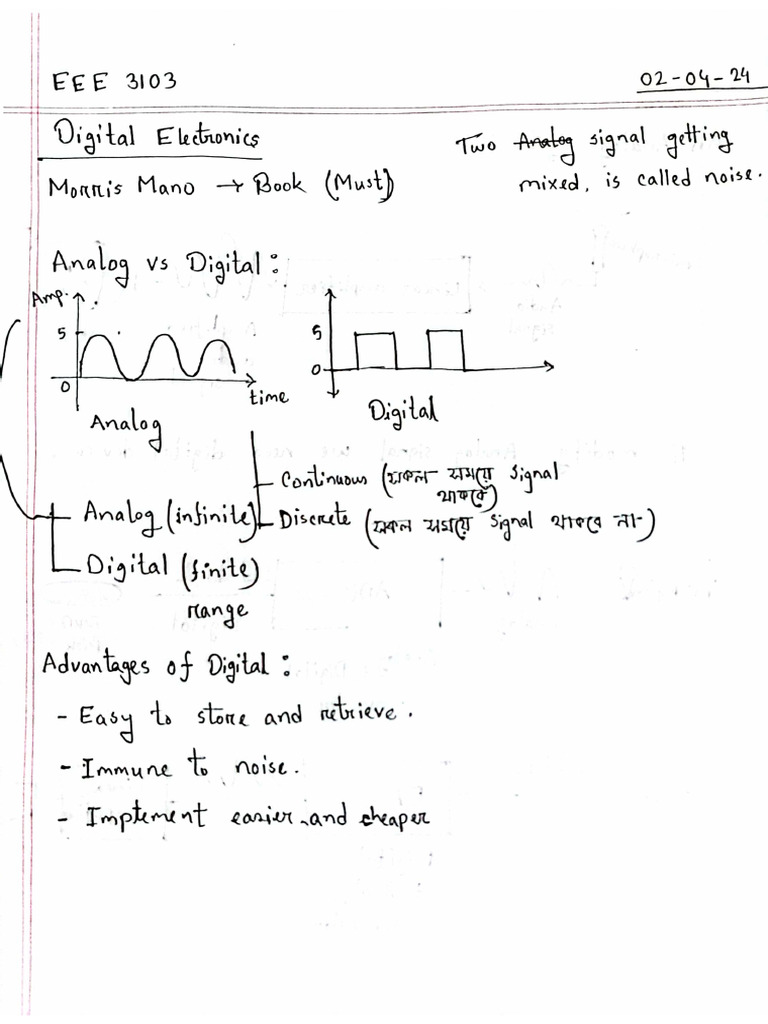 EEE 3103
02-04-24
Digital Electronics
Two Analog signal getting
mixed, is called noise.
Morris Mano → Book (Must)
Analog vs Digital :
Amp.
5
0
time
Analog
5
0
Digital
- Continuous (সকল সময়ে signal
থাকবে)
Analog (infinite)
- Discrete (সকল সময়ে signal থাকবে না)
Digital (finite)
range
Advantages of Digital :
- Easy to store and retrieve.
- Immune to noise.
- Implement easier and cheaper